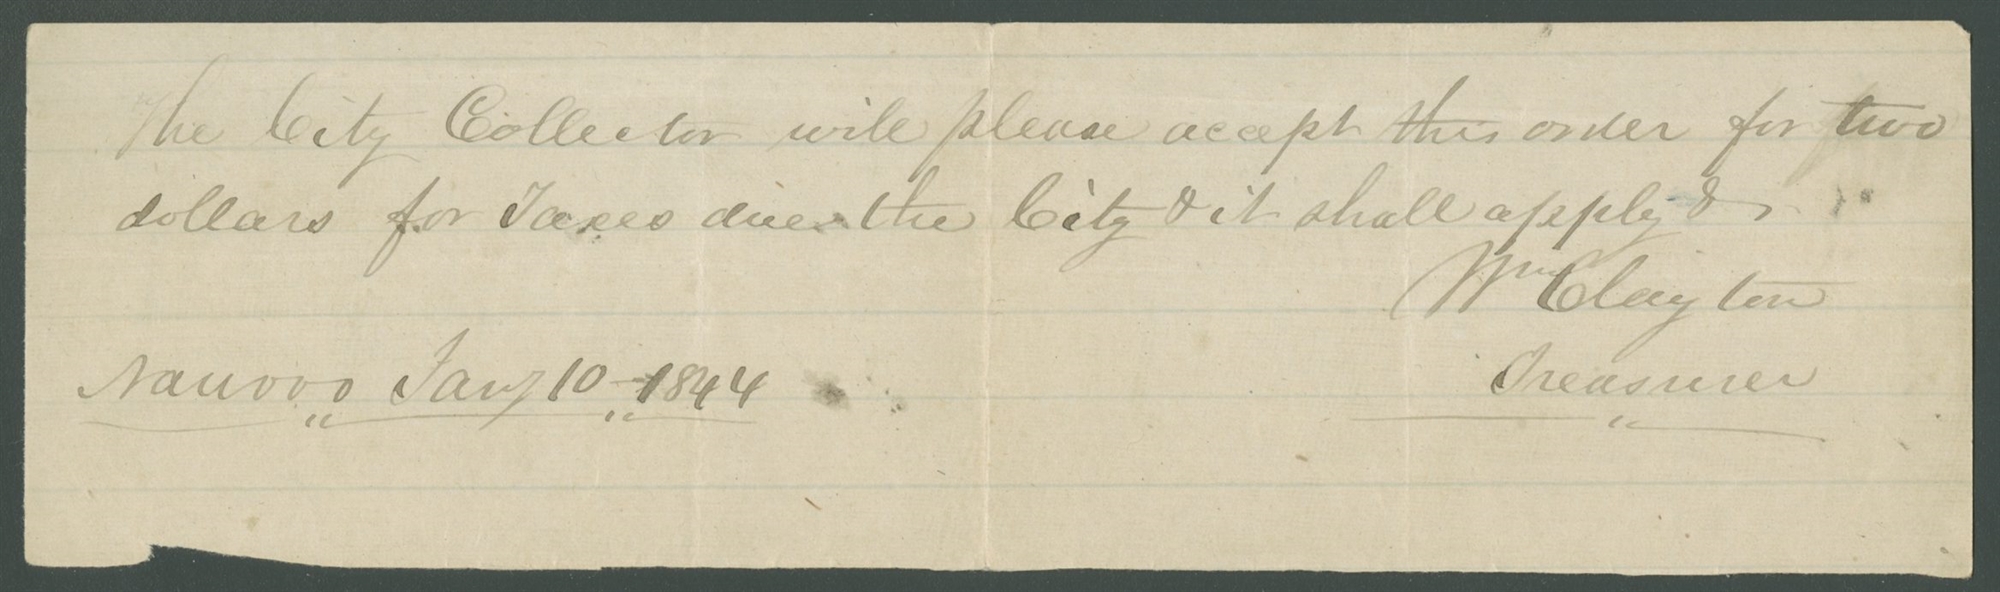 The City Collector will please accept this order for two
dollars for Taxes due the City & it shall apply &c
Wm Clayton
Nauvoo Jany 10 1844
Treasurer